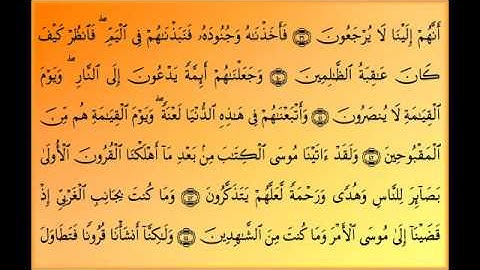 أَنَّهُمْ إِلَيْنَا لَا يُرْجَعُونَ ۝٣٩ فَأَخَذْنَـٰهُ وَجُنُودَهُۥ فَنَبَذْنَـٰهُمْ فِى ٱلْيَمِّ ۖ فَٱنظُرْ كَيْفَ
كَانَ عَـٰقِبَةُ ٱلظَّـٰلِمِينَ ۝٤٠ وَجَعَلْنَـٰهُمْ أَئِمَّةً يَدْعُونَ إِلَى ٱلنَّارِ ۖ وَيَوْمَ
ٱلْقِيَـٰمَةِ لَا يُنصَرُونَ ۝٤١ وَأَتْبَعْنَـٰهُمْ فِى هَـٰذِهِ ٱلدُّنْيَا لَعْنَةً ۖ وَيَوْمَ ٱلْقِيَـٰمَةِ هُم مِّنَ
ٱلْمَقْبُوحِينَ ۝٤٢ وَلَقَدْ ءَاتَيْنَا مُوسَى ٱلْكِتَـٰبَ مِنۢ بَعْدِ مَآ أَهْلَكْنَا ٱلْقُرُونَ ٱلْأُولَىٰ
بَصَآئِرَ لِلنَّاسِ وَهُدًى وَرَحْمَةً لَّعَلَّهُمْ يَتَذَكَّرُونَ ۝٤٣ وَمَا كُنتَ بِجَانِبِ ٱلْغَرْبِىِّ إِذْ
قَضَيْنَآ إِلَىٰ مُوسَى ٱلْأَمْرَ وَمَا كُنتَ مِنَ ٱلشَّـٰهِدِينَ ۝٤٤ وَلَـٰكِنَّآ أَنشَأْنَا قُرُونًا فَتَطَاوَلَ